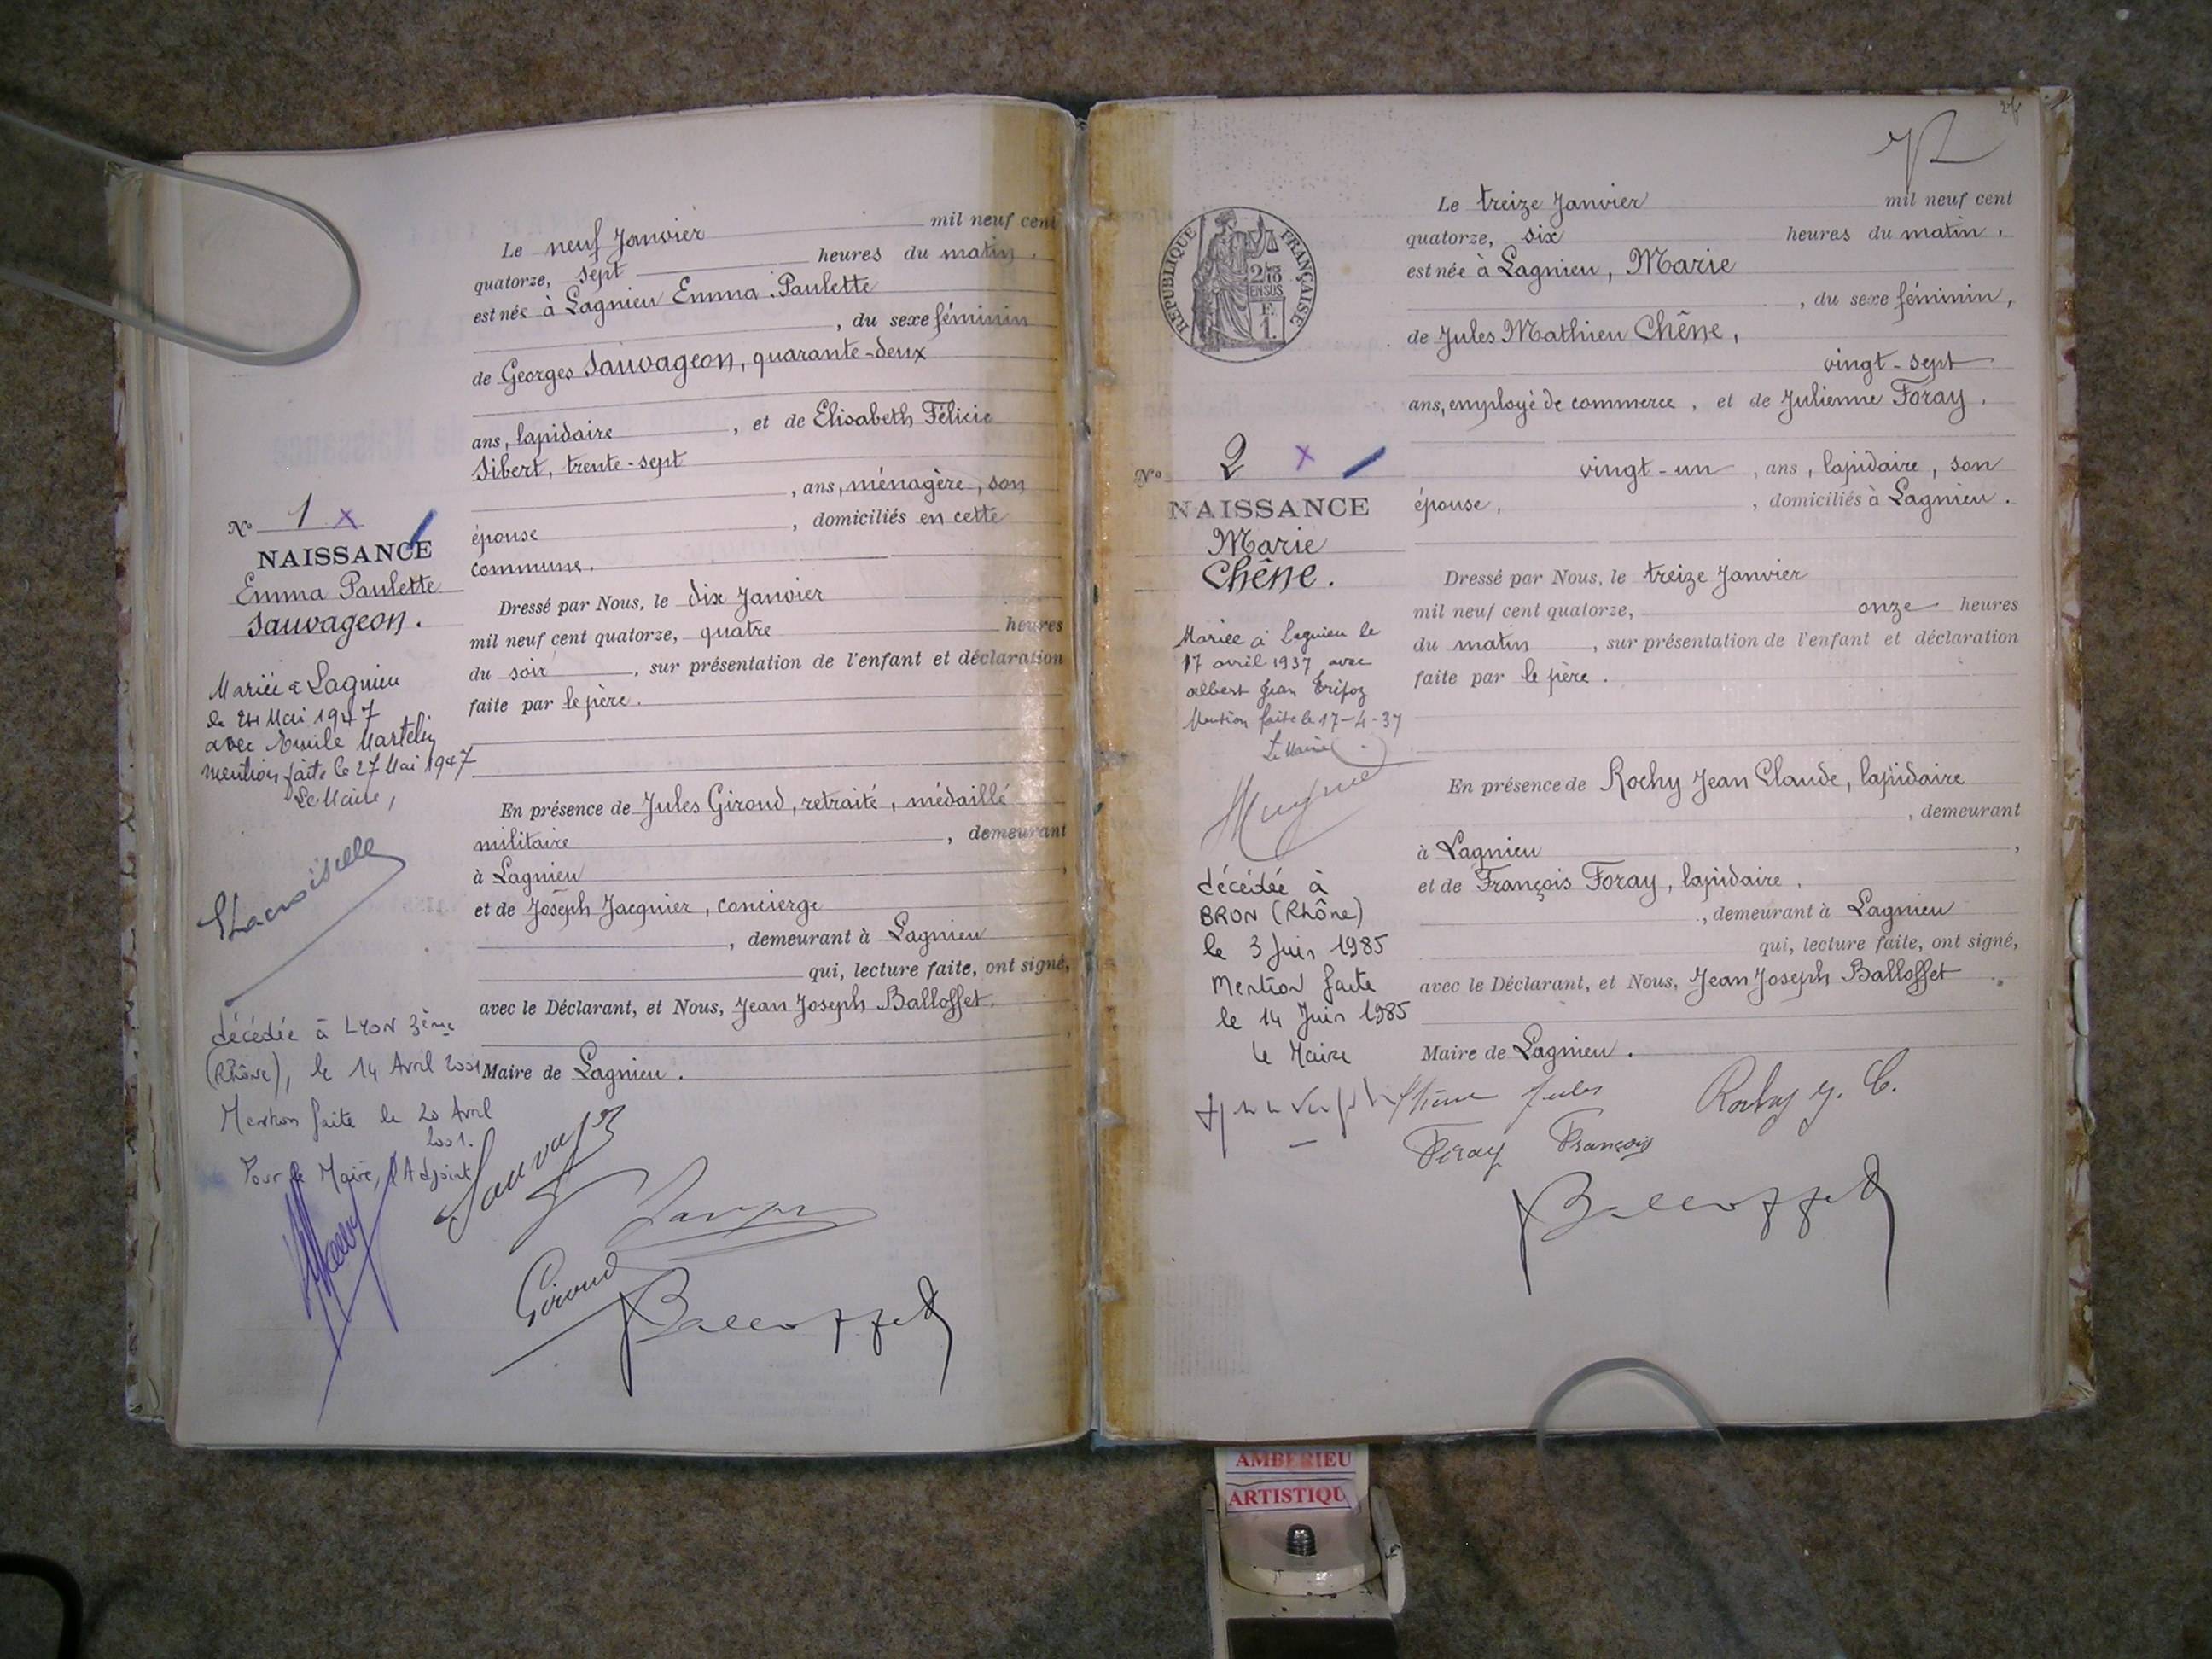 Le neuf Janvier mil neuf cent
quatorze, sept heures du matin.
est née à Lagnieu Emma Paulette
, du sexe féminin
de Georges Sauvageon, quarante-deux
ans, lapidaire, et de Elisabeth Félicie
Sibert, trente-sept
, ans, ménagère, son
épouse, domiciliés en cette
commune.
Nº 1 x
NAISSANCE
Emma Paulette
Sauvageon.
Mariée à Lagnieu
le 24 Mai 1947
avec Emile Martelin
mention faite le 27 Mai 1947
Le Maire,
Lacroiselle
décédée à LYON 3ème
(Rhône), le 14 Avril 2001
Mention faite le 20 Avril
2001.
Pour le Maire, l'Adjoint
Dressé par Nous, le dix Janvier
mil neuf cent quatorze, quatre heures
du soir, sur présentation de l'enfant et déclaration
faite par le père.
En présence de Jules Giroud, retraité, médaillé
militaire, demeurant
à Lagnieu,
et de Joseph Jacquier, concierge
, demeurant à Lagnieu
qui, lecture faite, ont signé,
avec le Déclarant, et Nous, Jean Joseph Balloffet.
Maire de Lagnieu.
Giroud
Balloffet
Le treize Janvier mil neuf cent
quatorze, six heures du matin.
est née à Lagnieu, Marie
, du sexe féminin,
de Jules Mathieu Chêne,
vingt-sept
ans, employé de commerce, et de Julienne Foray,
vingt-un, ans, lapidaire, son
épouse, domiciliés à Lagnieu.
RÉPUBLIQUE FRANÇAISE
2/10
EN SUS
1 F.
Nº 2 x
NAISSANCE
Marie
Chêne.
Mariée à Lagnieu le
17 avril 1937 avec
albert Jean
Mention faite le 17-4-37
Le Maire
décédée à
BRON (Rhône)
le 3 Juin 1985
Mention faite
le 14 Juin 1985
le Maire
Dressé par Nous, le treize Janvier
mil neuf cent quatorze, onze heures
du matin, sur présentation de l'enfant et déclaration
faite par le père.
En présence de Rochy Jean Claude, lapidaire
, demeurant
à Lagnieu,
et de François Foray, lapidaire,
, demeurant à Lagnieu
qui, lecture faite, ont signé,
avec le Déclarant, et Nous, Jean Joseph Balloffet
Maire de Lagnieu.
Chêne Jules Rochy J. C.
Foray François
Balloffet
AMBERIEU
ARTISTIQU